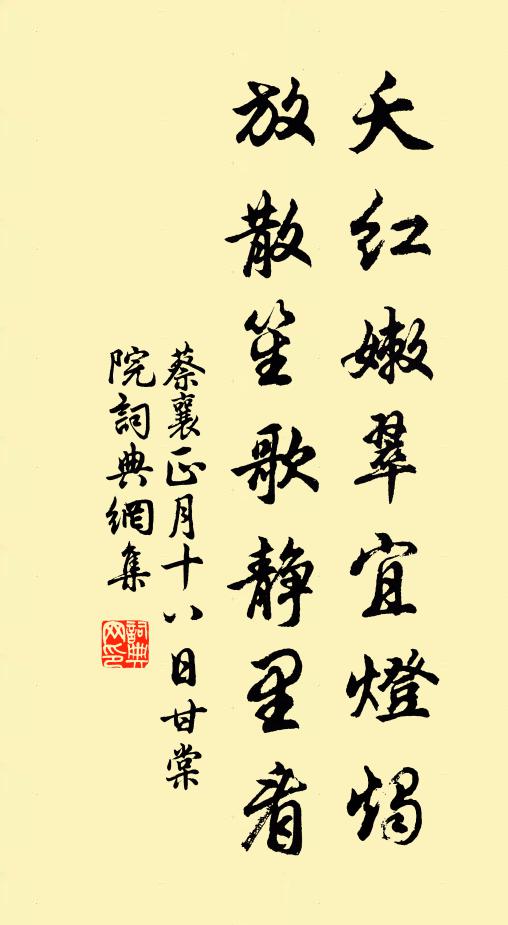 夭红嫩翠宜燈燭
放散笙歌静里看
蔡襄正月十八日甘棠
院詞典網集
詞典
网印